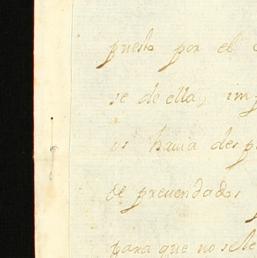 puesto por el
se de ella, imp
os havia desp
de prevendados
para que no se le